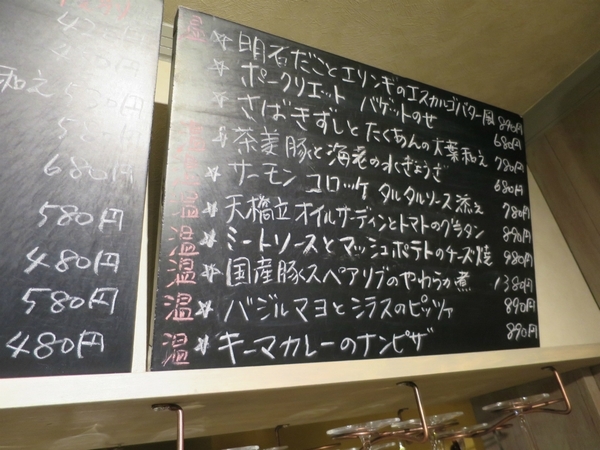 和え 550円
680円
580円
480円
580円
480円
温 ☆ 明石だことエリンギのエスカルゴバター風 890円
☆ ポークリエット バゲットのせ 680円
☆ さばきずしとたくあんの大葉和え 780円
温 ☆ 茶美豚と海老の水ぎょうざ 680円
温 ☆ サーモンコロッケ タルタルソース添え 780円
温 ☆ 天橋立オイルサーディンとトマトのグラタン 890円
温 ☆ ミートソースとマッシュポテトのチーズ焼 980円
温 ☆ 国産豚スペアリブのやわらか煮 1380円
温 ☆ バジルマヨとシラスのピッツァ 890円
温 ☆ キーマカレーのナンピザ 890円